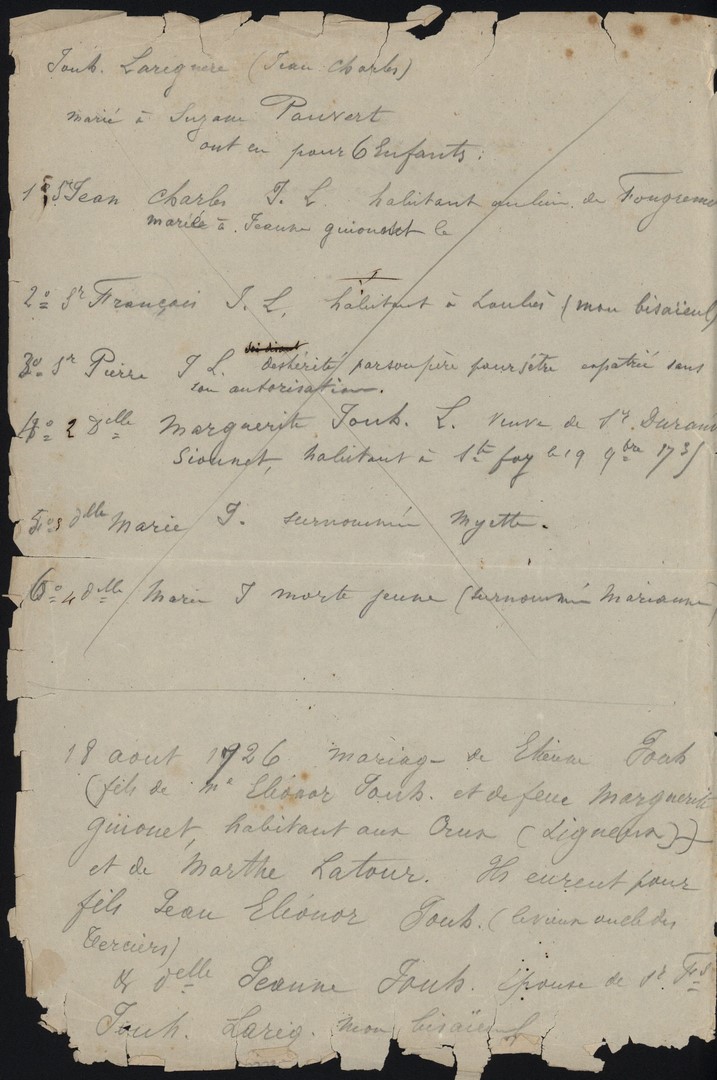 Jouh. Larégnère (Jean Charles)
marié à Suzane Pauvert
ont eu pour 6 Enfants :
1º Sr Jean Charles J. L. habitant au lieu de
mariée à Jeanne guionnet le
2º Sr François J. L. habitant à Loubès (mon bisaïeul)
3º Sr Pierre J L. déshérité par son père pour s'être expatrié sans
son autorisation.
4º 2 dlle Marguerite Jouh. L. veuve de Sr Durand
Sionnet, habitant à Ste foy le 19 9bre 173
5º 3 dlle Marie J. surnommée Myette.
6º 4 dlle Marie J morte jeune (surnommée Marianne)
18 aout 1726 mariage de Etienne Jouh
(fils de me Eléonor Jouh. et de feue Marguerite
guionet, habitant aux (Ligneux))
et de Marthe Latour. Ils eurent pour
fils Jean Eléonor Jouh. (le vieux oncle des
Terciers)
& dlle Jeanne Jouh. épouse de Sr. Fs
Jouh. Lareg. mon bisaïeul